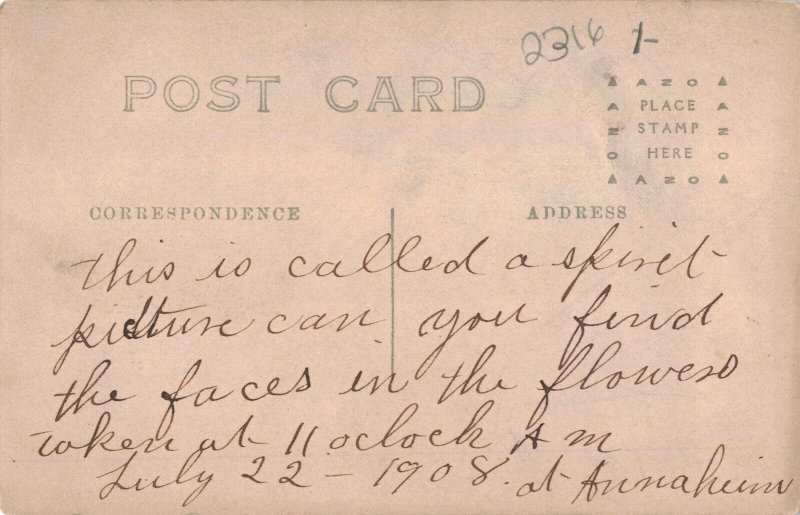 2316 1-
POST CARD
AZO
PLACE
STAMP
HERE
AZO
AZO
AZO
CORRESPONDENCE
ADDRESS
this is called a spiret
picture can you find
the faces in the flowers
taken at 11 oclock A m
July 22 - 1908. at Annaheim